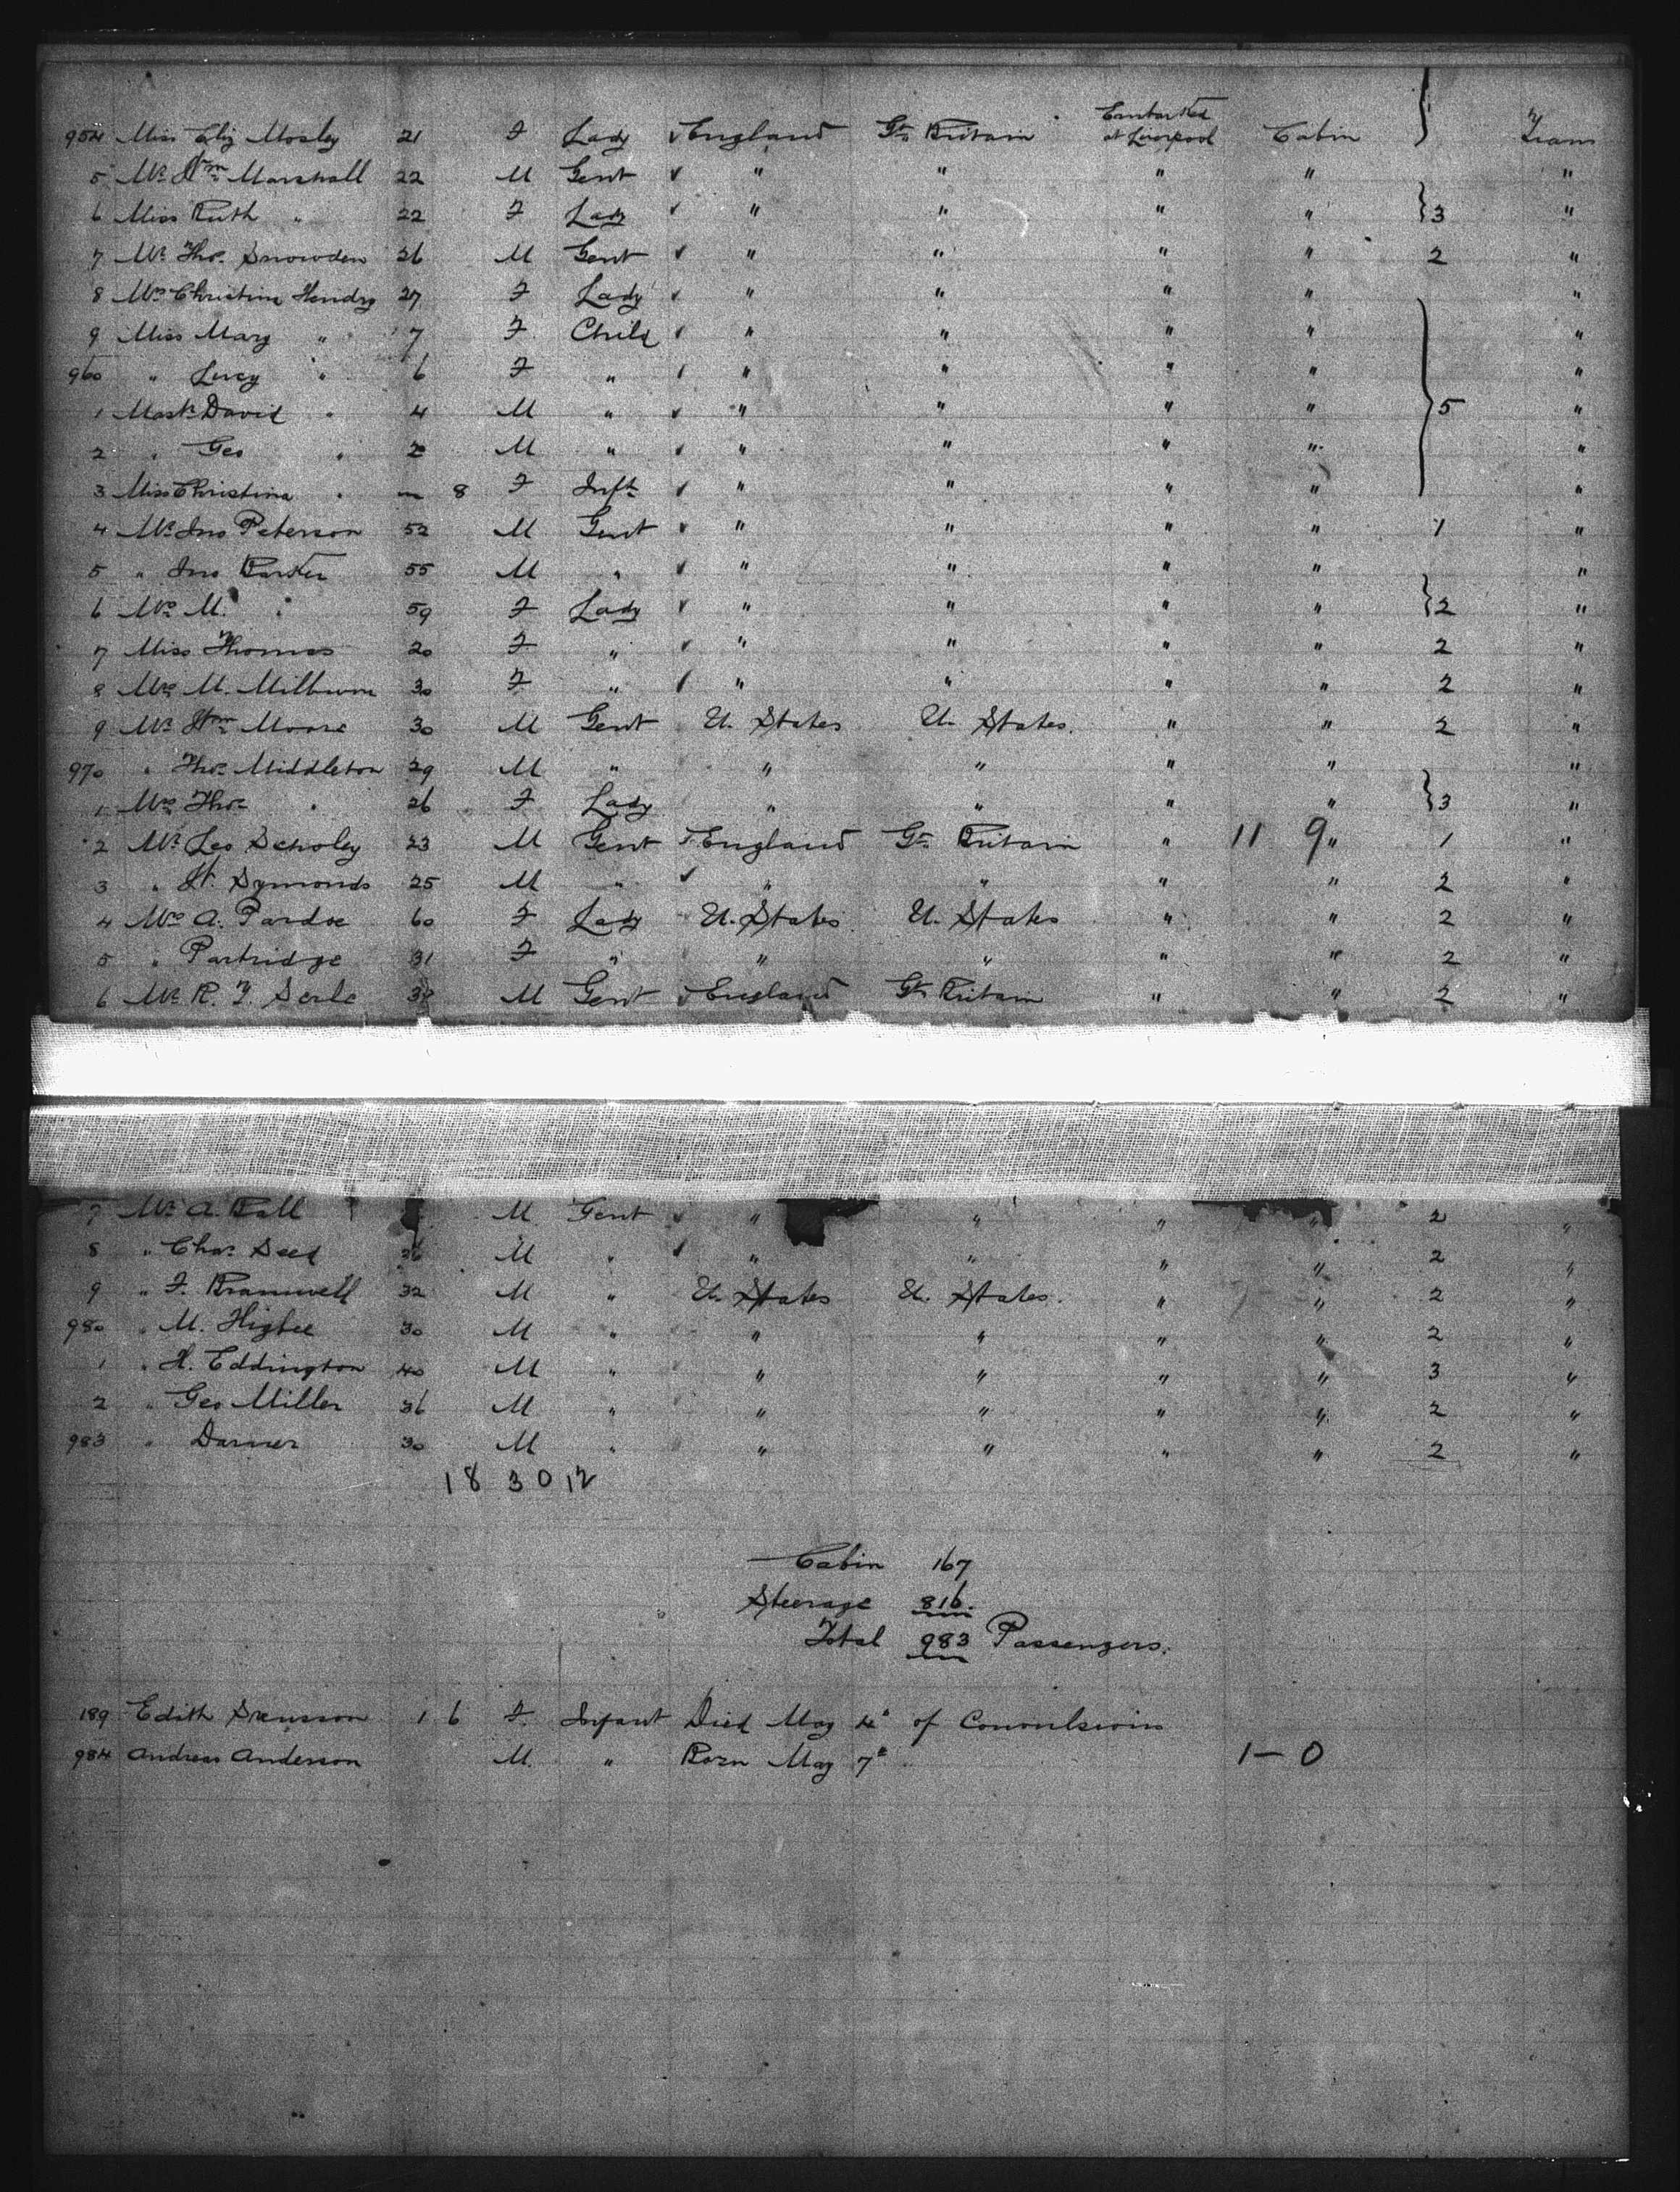 954 Miss Eliz Mosley 21 F Lady England Gt. Britain Embarked at Liverpool Cabin Trans
5 Mr. Wm Marshall 22 M Gent " " " " "
6 Miss Ruth " 22 F Lady " " " " 3 "
7 Mr. Thos. Snowden 26 M Gent " " " " 2 "
8 Mrs Christina Hendry 27 F Lady " " " " "
9 Miss Mary " 7 F Child " " " " "
960 " Lucy " 6 F " " " " " "
1 Mastr David " 4 M " " " " " 5 "
2 " Geo " 2 M " " " " " "
3 Miss Christina " 8 F Inft. " " " " "
4 Mr. Jno Peterson 52 M Gent " " " " 1 "
5 " Jno Barker 55 M " " " " " "
6 Mrs. M. " 59 F Lady " " " " 2 "
7 Miss Thomas 20 F " " " " " 2 "
8 Mrs. M. Milburn 30 F " " " " " 2 "
9 Mr. Wm Moore 30 M Gent U. States U. States. " " 2 "
970 " Thos. Middleton 29 M " " " " " "
1 Mrs. Thos. " 26 F Lady " " " " 3 "
2 Mr. Leo Scholey 23 M Gent England Gt. Britain " 11 9 " 1 "
3 " H. Symonds 25 M " " " " " 2 "
4 Mrs A. Pardoe 60 F Lady U. States U. States " " 2 "
5 " Partridge 31 F " " " " " 2 "
6 Mr. R. F. Serle M Gent England Gt Britain " " 2 "
7 Mr. A. Ball M. Gent " " " " 2 "
8 " Chas. Seed 26 M " " " " " 2 "
9 " F. Bramwell 32 M " U. States U. States. " " 2 "
980 " M. Higbee 30 M " " " " " 2 "
1 " H. Eddington 40 M " " " " " 3 "
2 " Geo Miller 36 M " " " " " 2 "
983 " Darmer 30 M " " " " " 2 "
18 30 12
Cabin 167
Steerage 816.
Total 983 Passengers.
189 Edith Swensson 1 6 F. Infant Died May 4" of Convulsions
984 Andreas Anderson M. " Born May 7" 1 – 0